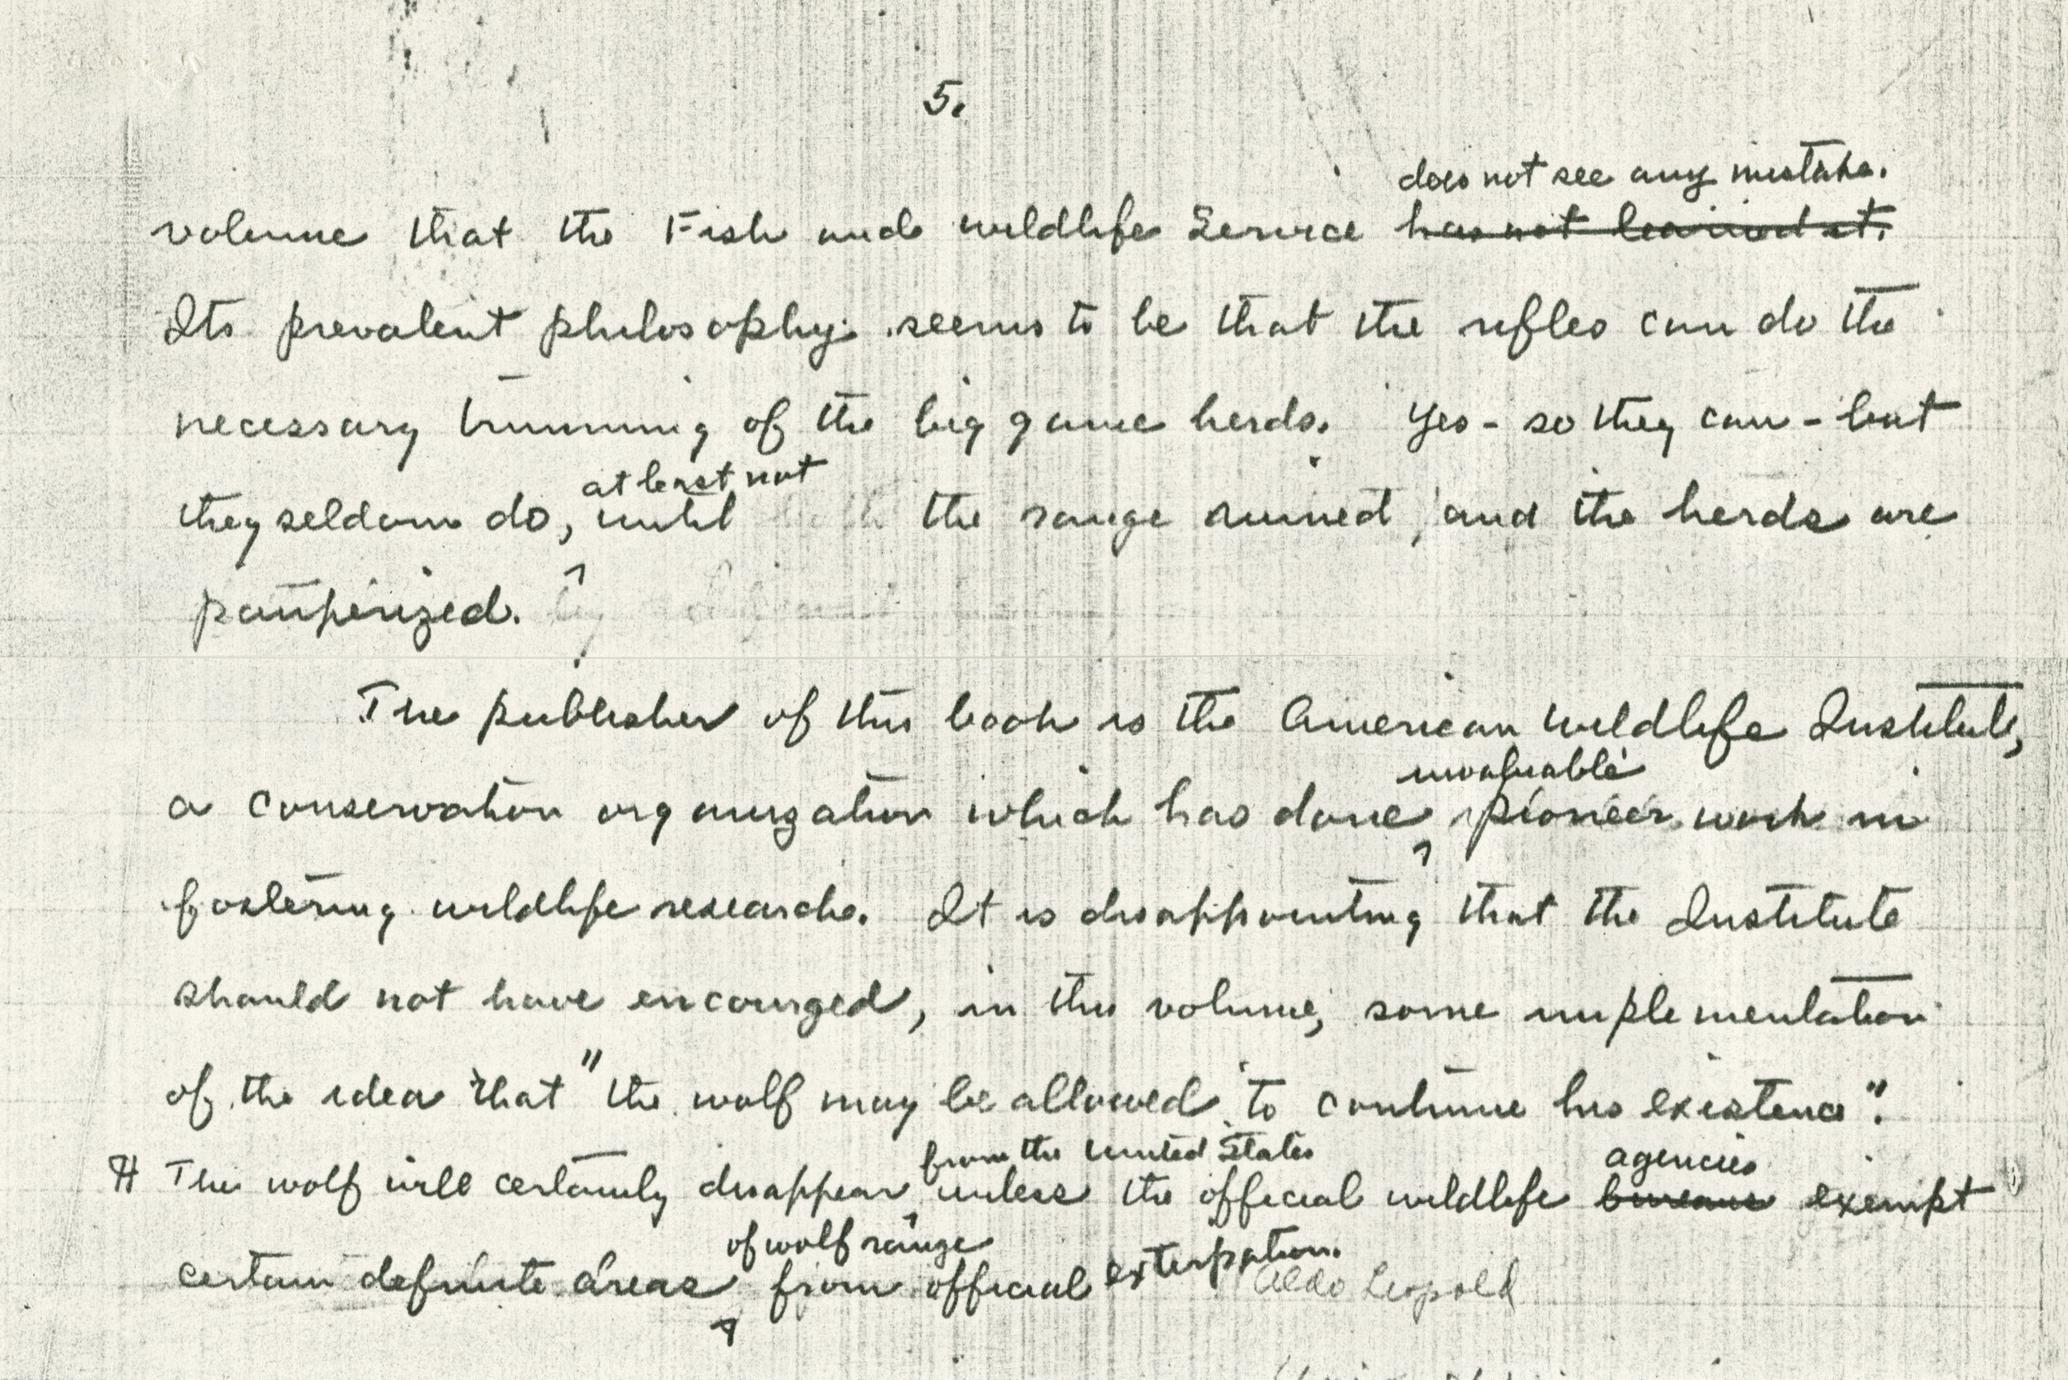 5.
does not see any mistake.
volume that the Fish and wildlife Service has not learned it.
Its prevalent philosophy seems to be that the rifles can do the
necessary trimming of the big game herds. Yes - so they can - but
at least not
they seldom do, until the range ruined, and the herds are
pauperized.
The publisher of this book is the American Wildlife Institute,
invaluable
a conservation organization which has done pioneer work in
fostering wildlife research. It is disappointing that the Institute
should not have encouraged, in this volume, some implementation
of the idea that "the wolf may be allowed to continue his existence".
from the United States agencies
The wolf will certainly disappear unless the official wildlife bureaus exempt
of wolf range
certain definite areas from official extirpation.
Aldo Leopold